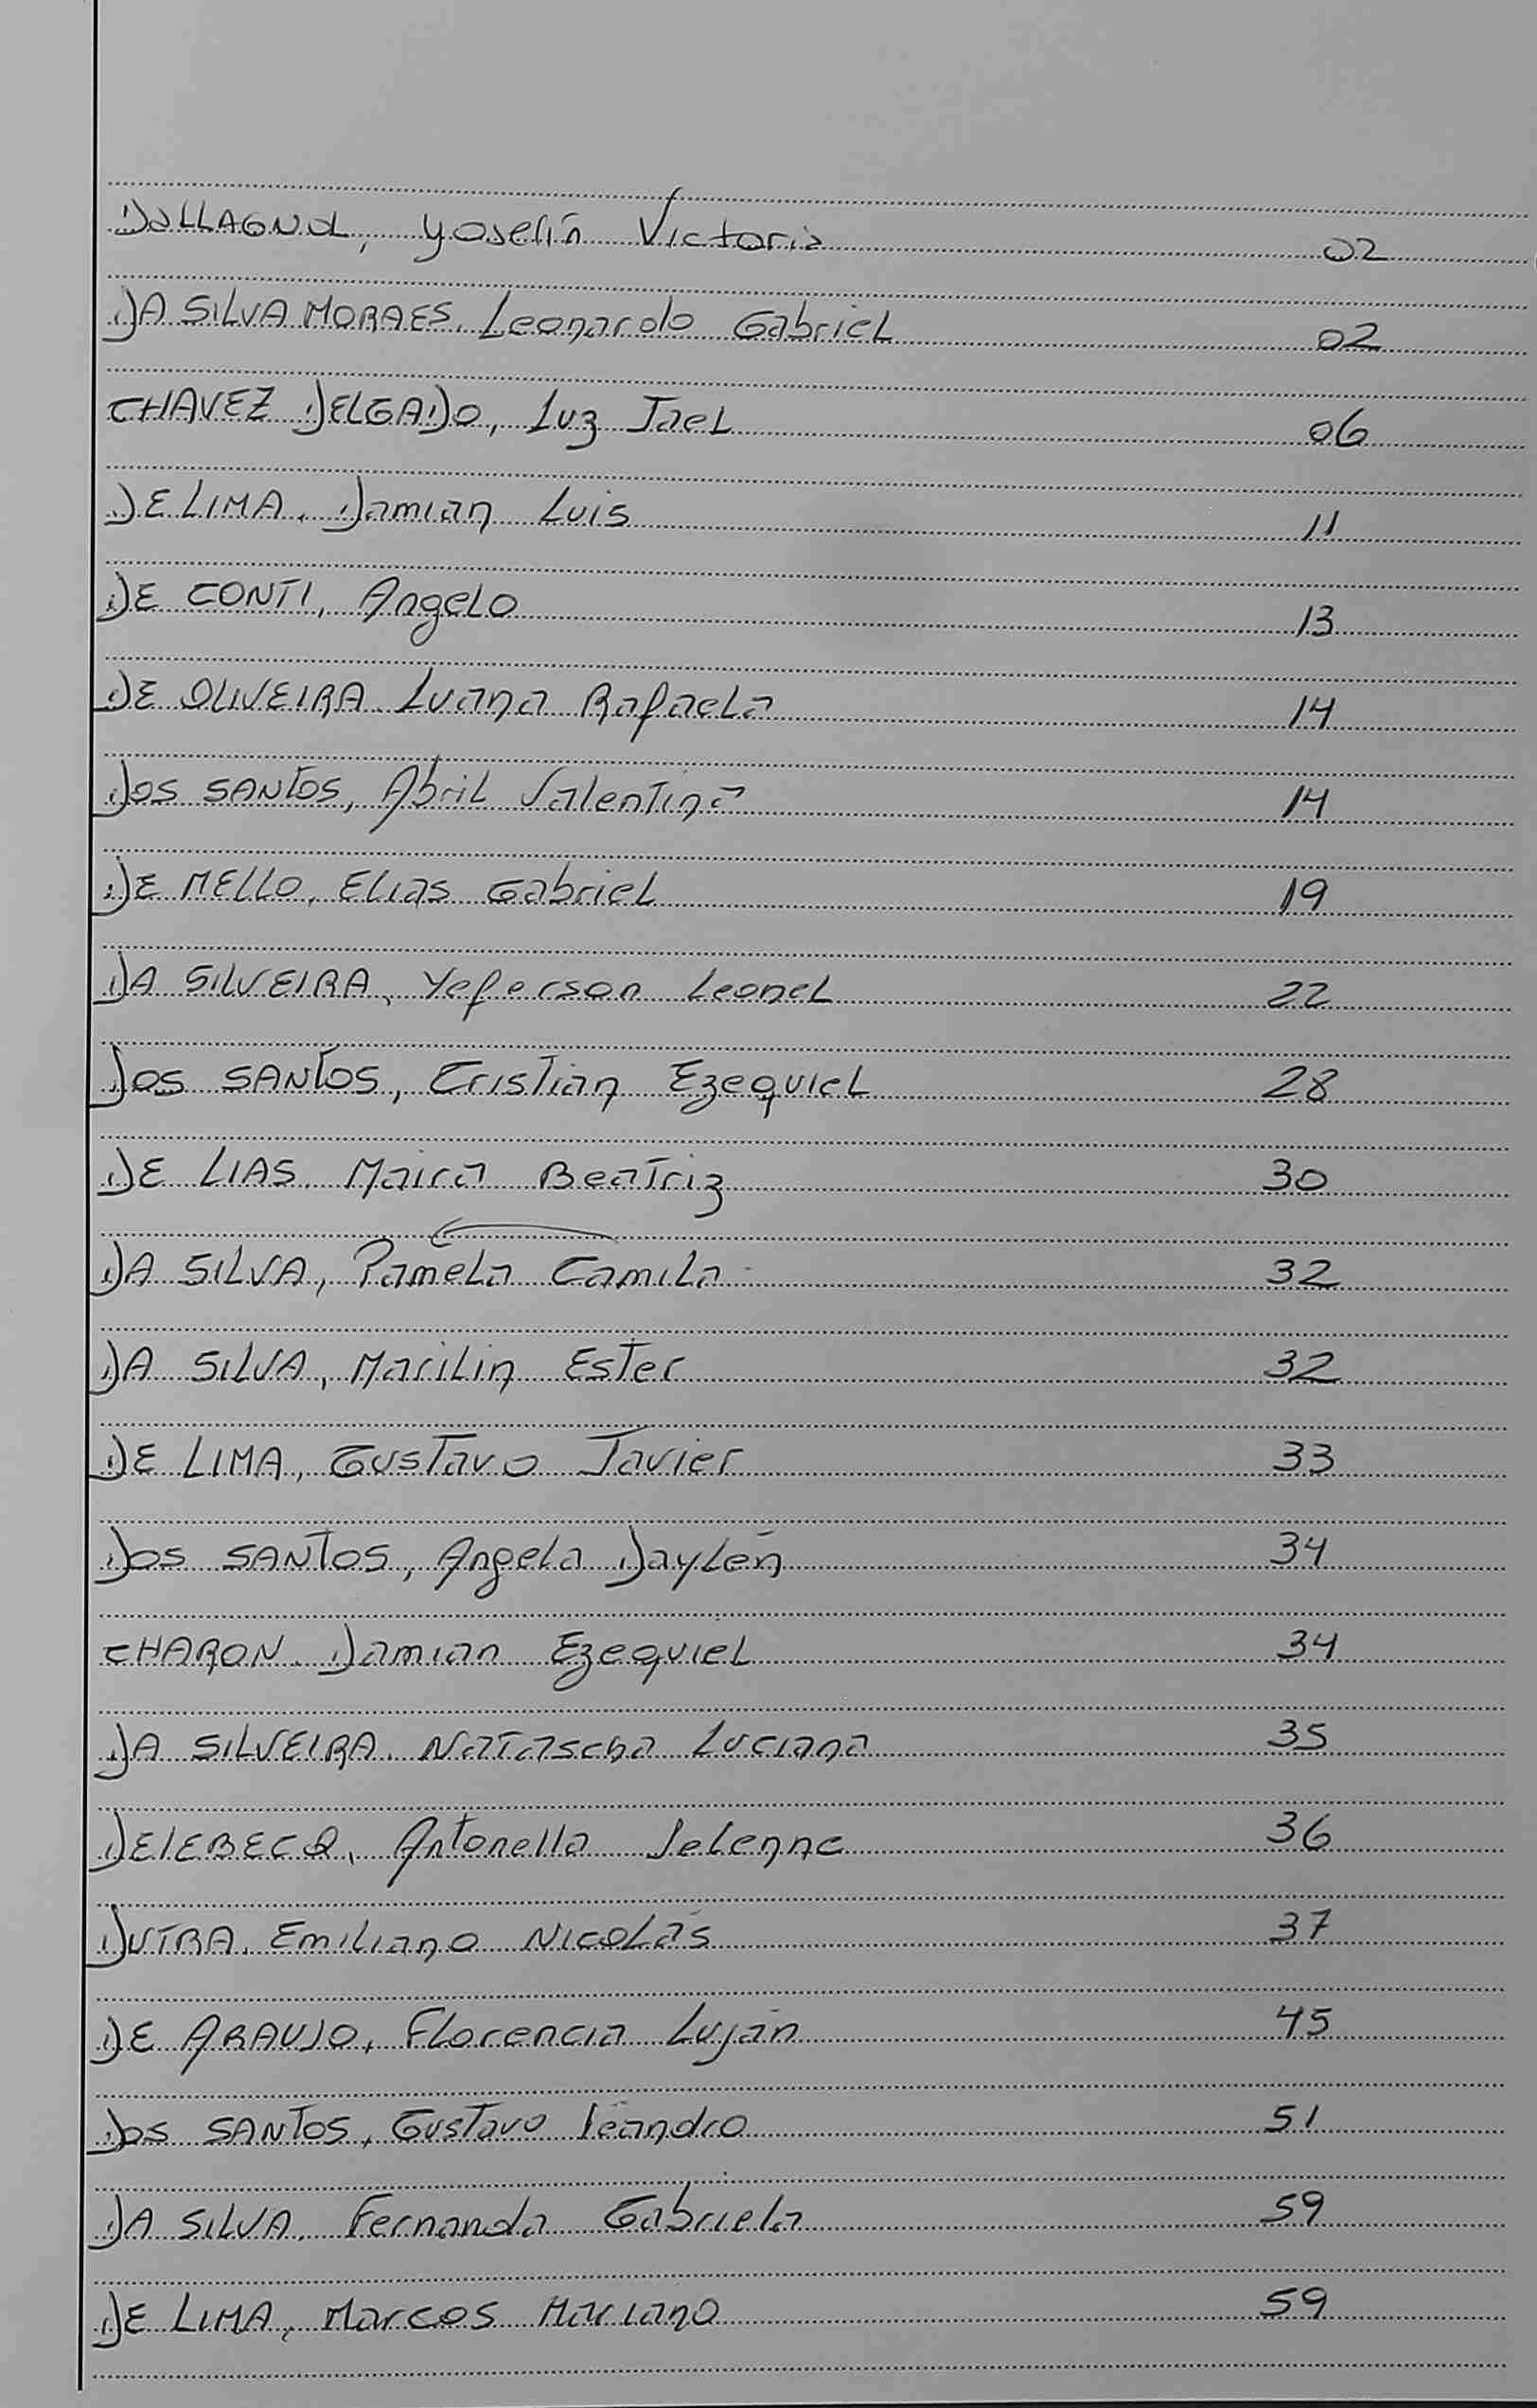 DALLAGNOL, Yoselín Victoria 02
DA SILVA MORAES, Leonardo Gabriel 02
CHAVEZ DELGADO, Luz Jael 06
DE LIMA, Damian Luis 11
DE CONTI, Angelo 13
DE OLIVEIRA, Luana Rafaela 14
DOS SANTOS, Abril Valentina 14
DE MELLO, Elias Gabriel 19
DA SILVEIRA, Yeferson Leonel 22
DOS SANTOS, Cristian Ezequiel 28
DE LIAS, Maira Beatriz 30
DA SILVA, Pamela Camila 32
DA SILVA, Marilin Ester 32
DE LIMA, Gustavo Javier 33
DOS SANTOS, Angela Daylén 34
CHARON, Damian Ezequiel 34
DA SILVEIRA, Natascha Luciana 35
DELEBECQ, Antonella 36
DUTRA, Emiliano Nicolás 37
DE ARAUJO, Florencia Luján 45
DOS SANTOS, Gustavo Leandro 51
DA SILVA, Fernanda Gabriela 59
DE LIMA, Marcos Mariano 59